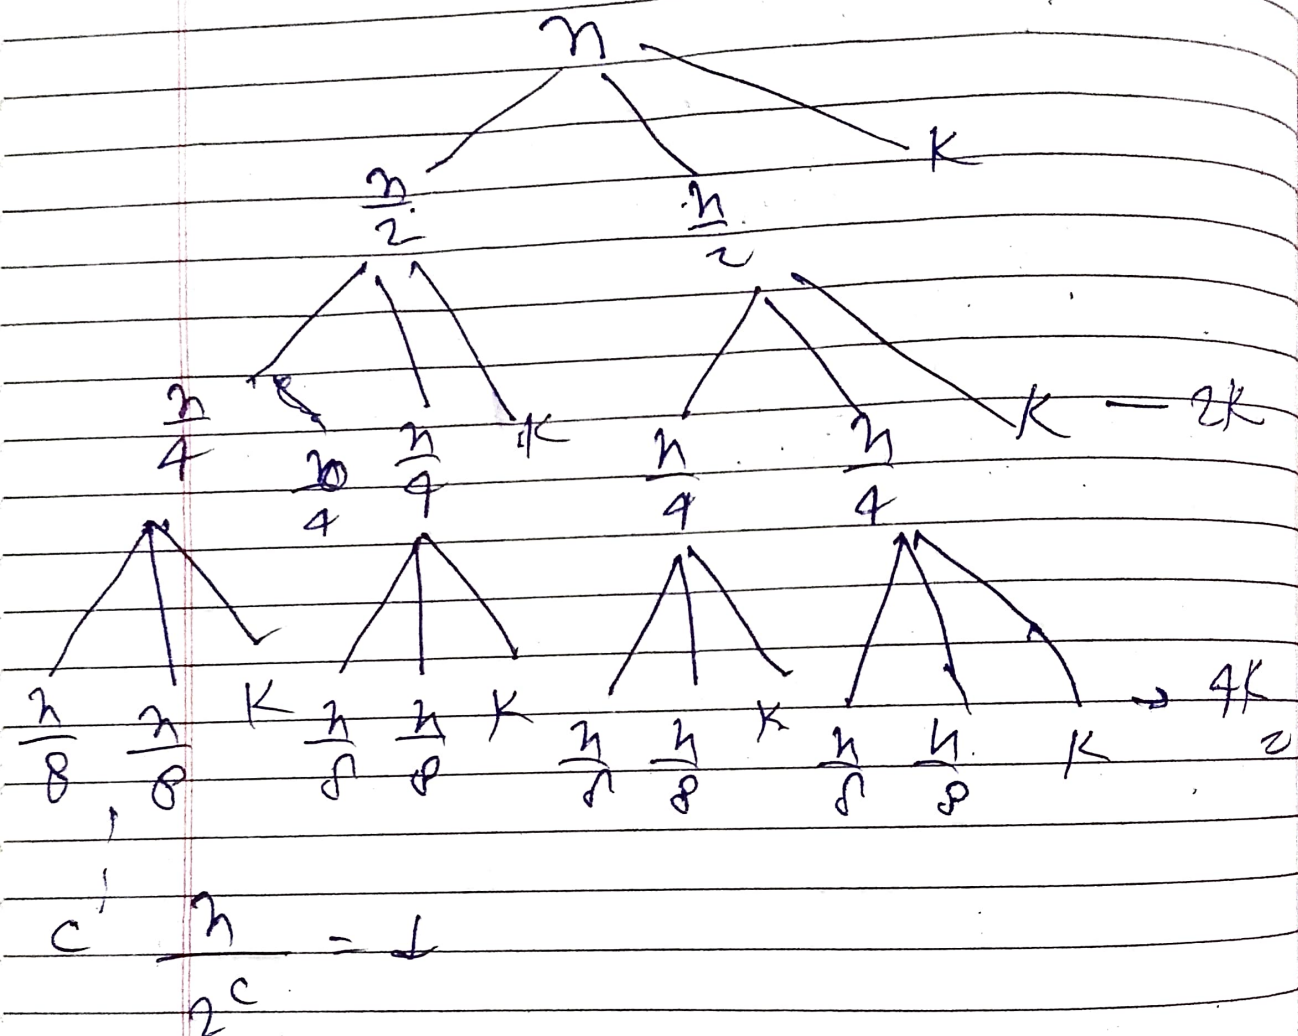 n
n/2 n/2 K
n/4 n/4 K n/4 n/4 K — 2K
4
n/8 n/8 K n/8 n/8 K n/8 n/8 K n/8 n/8 K → 4K
2
c n/2^c = 1